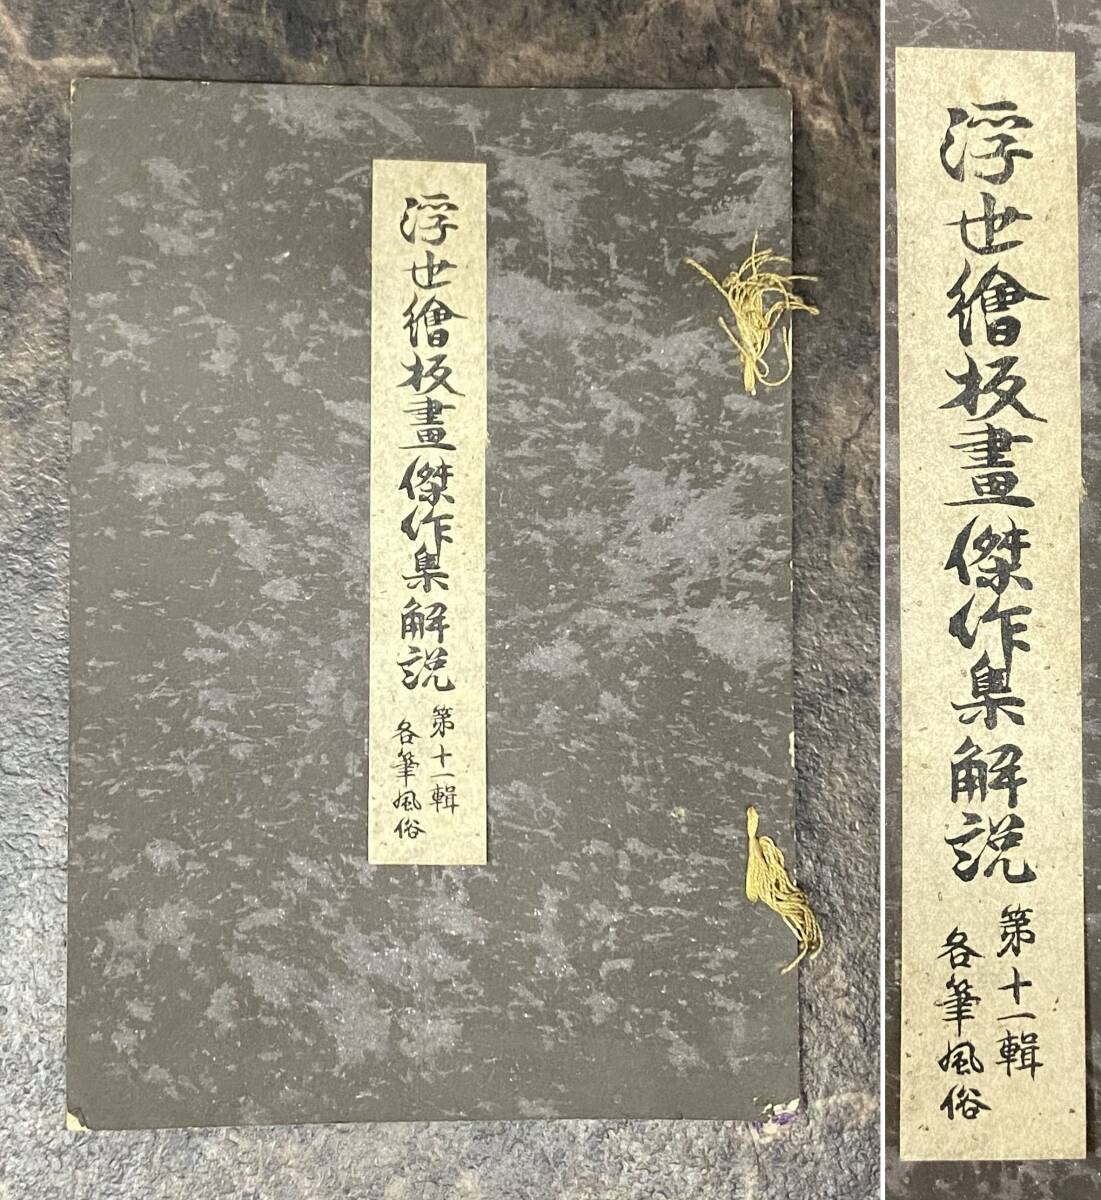 浮世繪板畫傑作集解説
第十一輯
各筆風俗
浮世繪板畫傑作集解説
第十一輯
各筆風俗